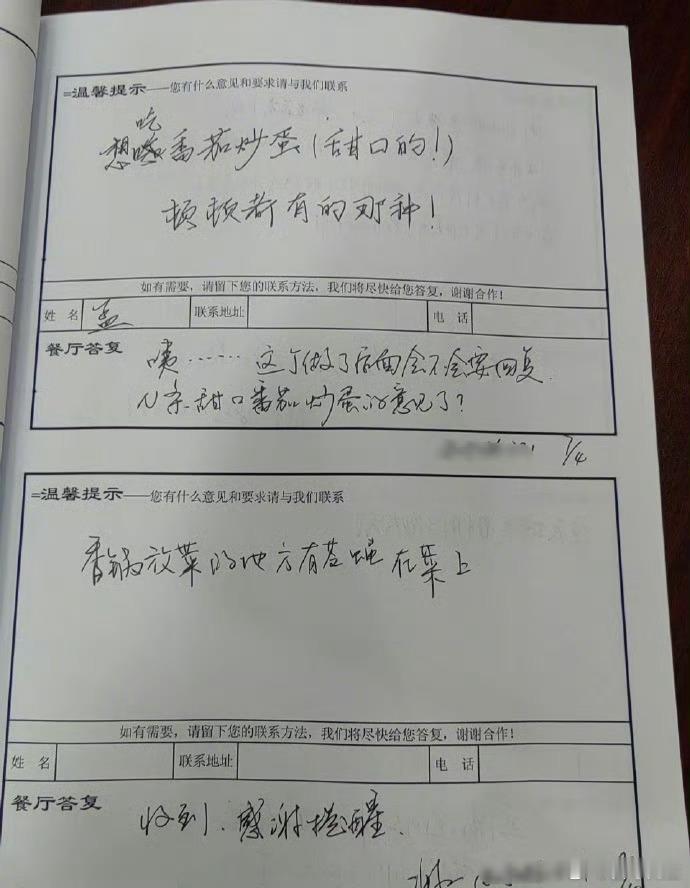 =温馨提示——您有什么意见和要求请与我们联系
吃
想番茄炒蛋(甜口的!)
顿顿都有的那种!
如有需要,请留下您的联系方法,我们将尽快给您答复,谢谢合作!
姓 名 孟 联系地址 电 话
餐厅答复 咦……这个做了后面会不会要回复
N条甜口番茄炒蛋的意见了?
7/4
=温馨提示——您有什么意见和要求请与我们联系
香锅放菜的地方有苍蝇在菜上
如有需要,请留下您的联系方法,我们将尽快给您答复,谢谢合作!
姓 名 联系地址 电 话
餐厅答复 收到、感谢提醒.